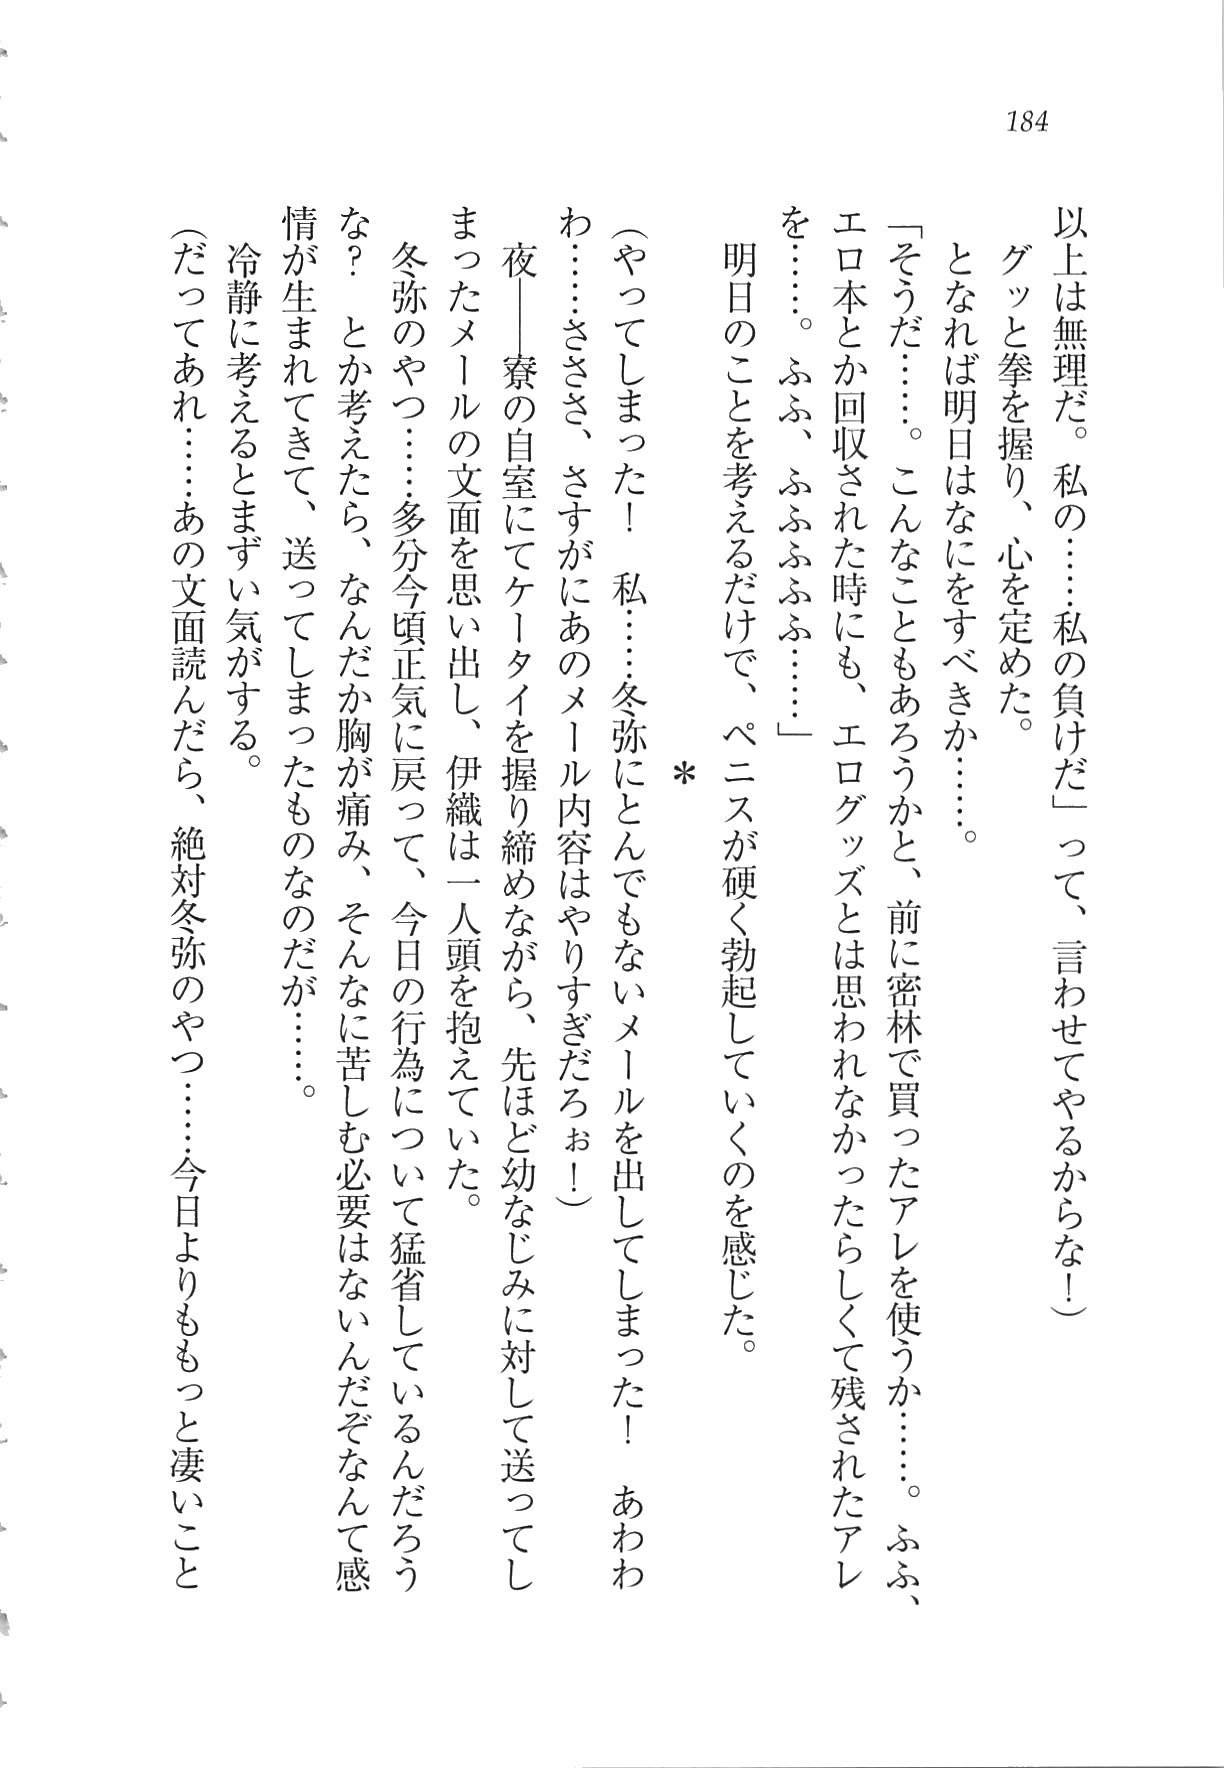 184
以上は無理だ。私の……私の負けだ」って、言わせてやるからな！）
　グッと拳を握り、心を定めた。
　となれば明日はなにをすべきか……。
「そうだ……。こんなこともあろうかと、前に密林で買ったアレを使うか……。ふふ、
エロ本とか回収された時にも、エログッズとは思われなかったらしくて残されたアレ
を……。ふふ、ふふふふふ……」
　明日のことを考えるだけで、ペニスが硬く勃起していくのを感じた。
＊
（やってしまった！　私……冬弥にとんでもないメールを出してしまった！　あわわ
わ……さささ、さすがにあのメール内容はやりすぎだろぉ！）
　夜――寮の自室にてケータイを握り締めながら、先ほど幼なじみに対して送ってし
まったメールの文面を思い出し、伊織は一人頭を抱えていた。
　冬弥のやつ……多分今頃正気に戻って、今日の行為について猛省しているんだろう
な？　とか考えたら、なんだか胸が痛み、そんなに苦しむ必要はないんだぞなんて感
情が生まれてきて、送ってしまったものなのだが……。
　冷静に考えるとまずい気がする。
（だってあれ……あの文面読んだら、絶対冬弥のやつ……今日よりももっと凄いこと